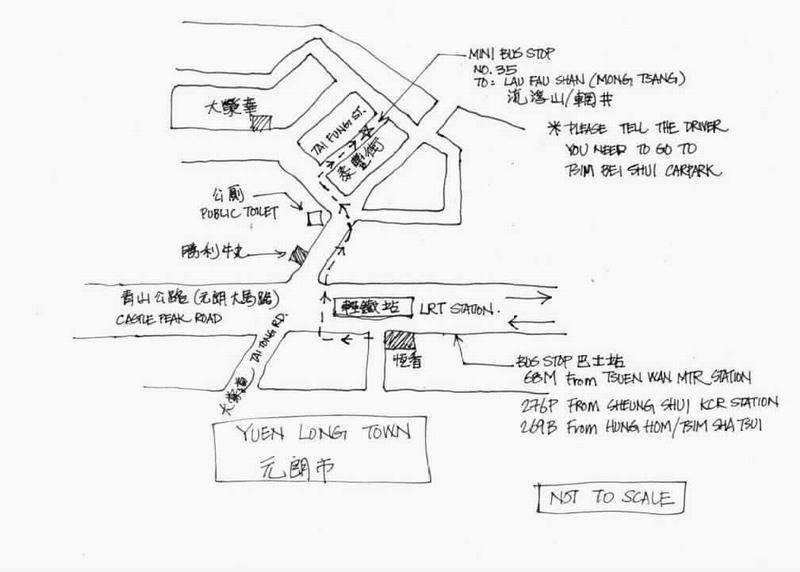 MINI BUS STOP
NO. 35
TO: LAU FAU SHAN (MONG TSANG)
流浮山/輞井
* PLEASE TELL THE DRIVER
YOU NEED TO GO TO
TSIM BEI SHUI CARPARK
大榮華
TAI FUNG ST.
泰豐街
公廁
PUBLIC TOILET
勝利牛丸
青山公路(元朗大馬路)
CASTLE PEAK ROAD
輕鐵站
LRT STATION.
大棠道 TAI TONG RD.
恆香
BUS STOP 巴士站
68M from TSUEN WAN MTR STATION
276P FROM SHEUNG SHUI KCR STATION
269B From HUNG HOM/TSIM SHA TSUI
YUEN LONG TOWN
元朗市
NOT TO SCALE